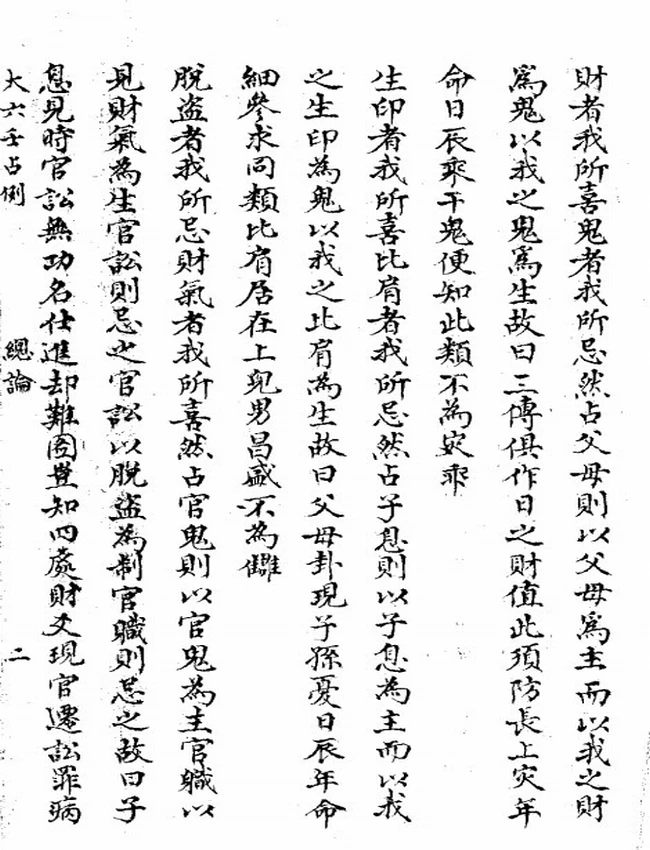 財者我所喜鬼者我所忌然占父母則以父母爲主而以我之財
爲鬼以我之鬼爲生故曰三傳俱作日之財值此須防長上灾年
命日辰乘干鬼便知此類不為灾乖
生印者我所喜比肩者我所忌然占子息則以子息為主而以我
之生印為鬼以我之比肩為生故曰父母卦現子孫憂日辰年命
細參求同類比肩居在上兒男昌盛不為讎
脫盜者我所忌財氣者我所喜然占官鬼則以官鬼為主官職以
見財氣為生官訟則忌之官訟以脫盜為制官職則忌之故曰子
息見時官訟無功名仕進却難圖豈知四處財爻現官遷訟罪病
大六壬占例
總論
二